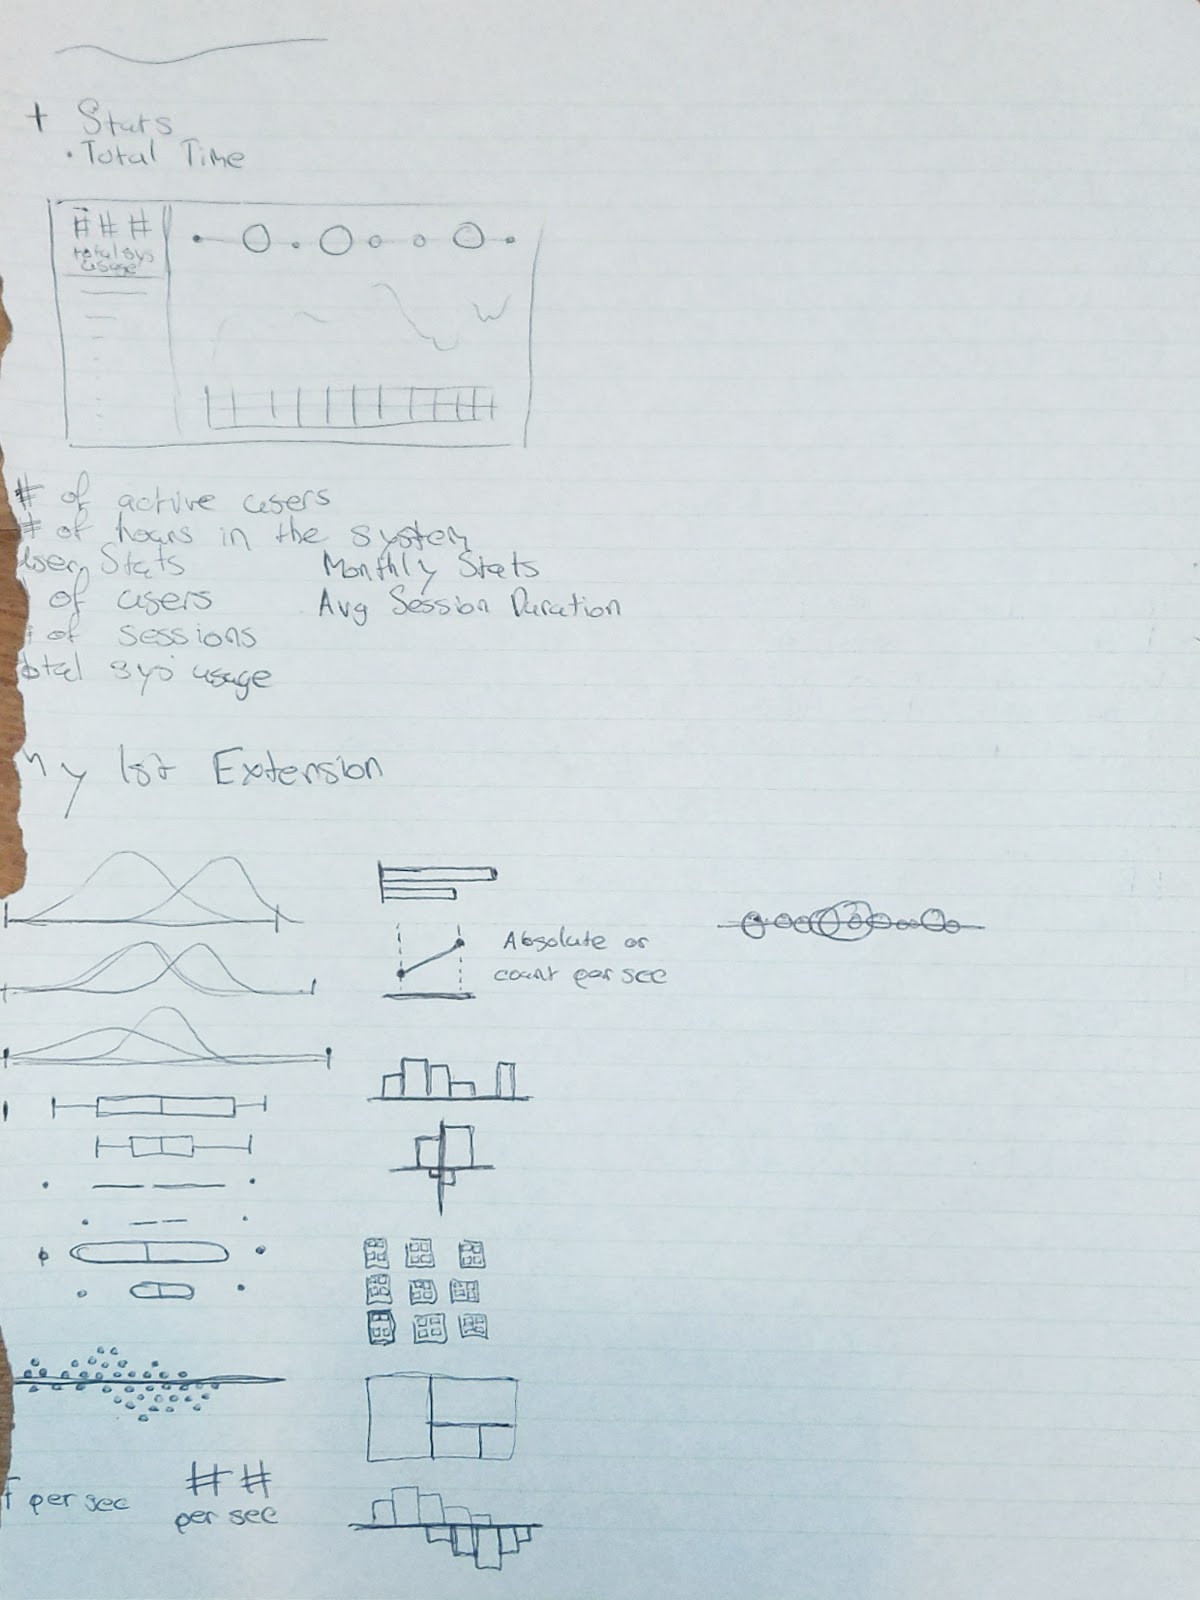 + Stats
• Total Time
# # #
total sys
usage
# of active users
# of hours in the system
User Stats
Monthly Stats
of users
Avg Session Duration
# of sessions
total sys usage
1st Extension
Absolute or
count per sec
per sec
# #
per sec